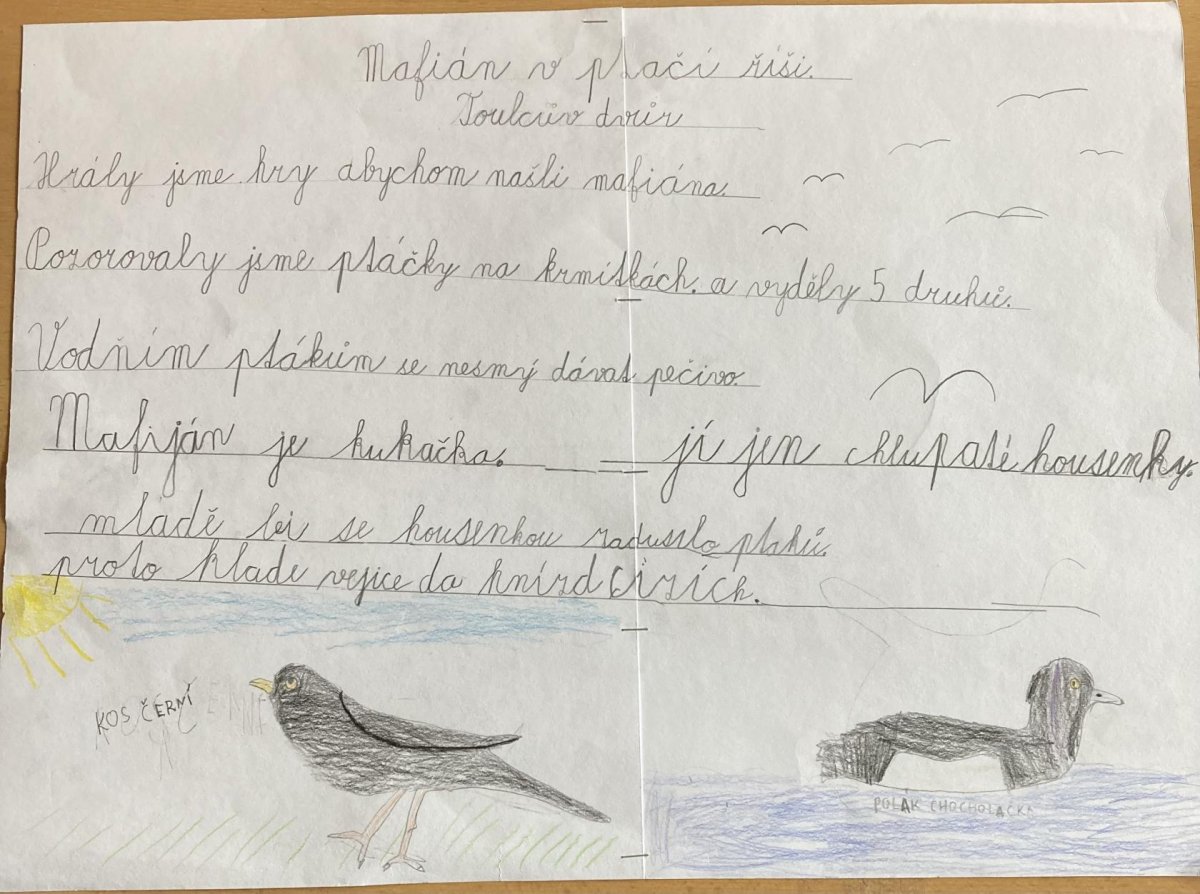 Mafián v ptačí říši.
Toulcův dvůr
Hrály jsme hry abychom našli mafiána.
Pozorovaly jsme ptáčky na krmítkách. a vyděly 5 druhů.
Vodňím ptákům se nesmý dávat pečivo.
Mafiján je kukačka. jí jen chlupaté housenky.
mládě bi se housenkou zadusilo ptaků.
proto klade vejice da hnízd cizích.
KOS ČERNÍ
POLÁK CHOCHOLAČKA